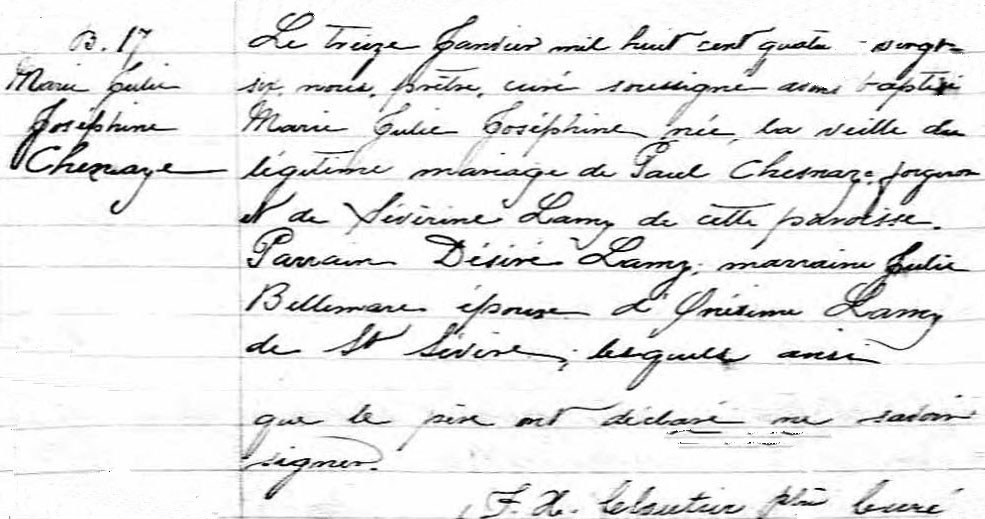 B. 17
Marie Julie
Joséphine
Chesnaye
Le treize Janvier mil huit cent quatre-vingt-
six, nous, prêtre, curé soussigné avons baptisé
Marie Julie Joséphine, née la veille du
légitime mariage de Paul Chesnaye, forgeron
et de Sévérine Lamy de cette paroisse.
Parrain Désiré Lamy, marraine Julie
Bellemare épouse d'Onésime Lamy
de St Sévère, lesquels ainsi
que le père ont déclaré ne savoir
signer.
F. X. ptre Curé